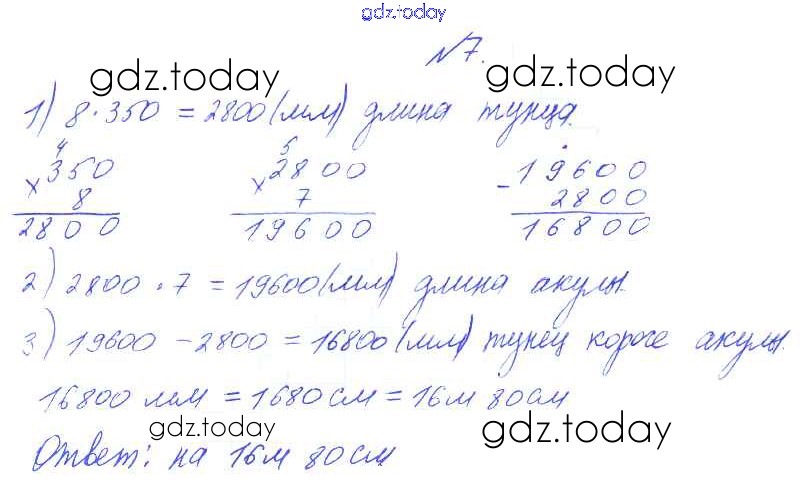 gdz.today
№7.
gdz.today gdz.today
1) 8·350 = 2800(мм) длина тунца.
4 5 .
× 350 × 2800 - 19600
8 7 2800
2800 19600 16800
2) 2800 · 7 = 19600(мм) длина акулы.
3) 19600 - 2800 = 16800(мм) тунец короче акулы.
16800 мм = 1680см = 16м 80см
gdz.today gdz.today
Ответ: на 16м 80см